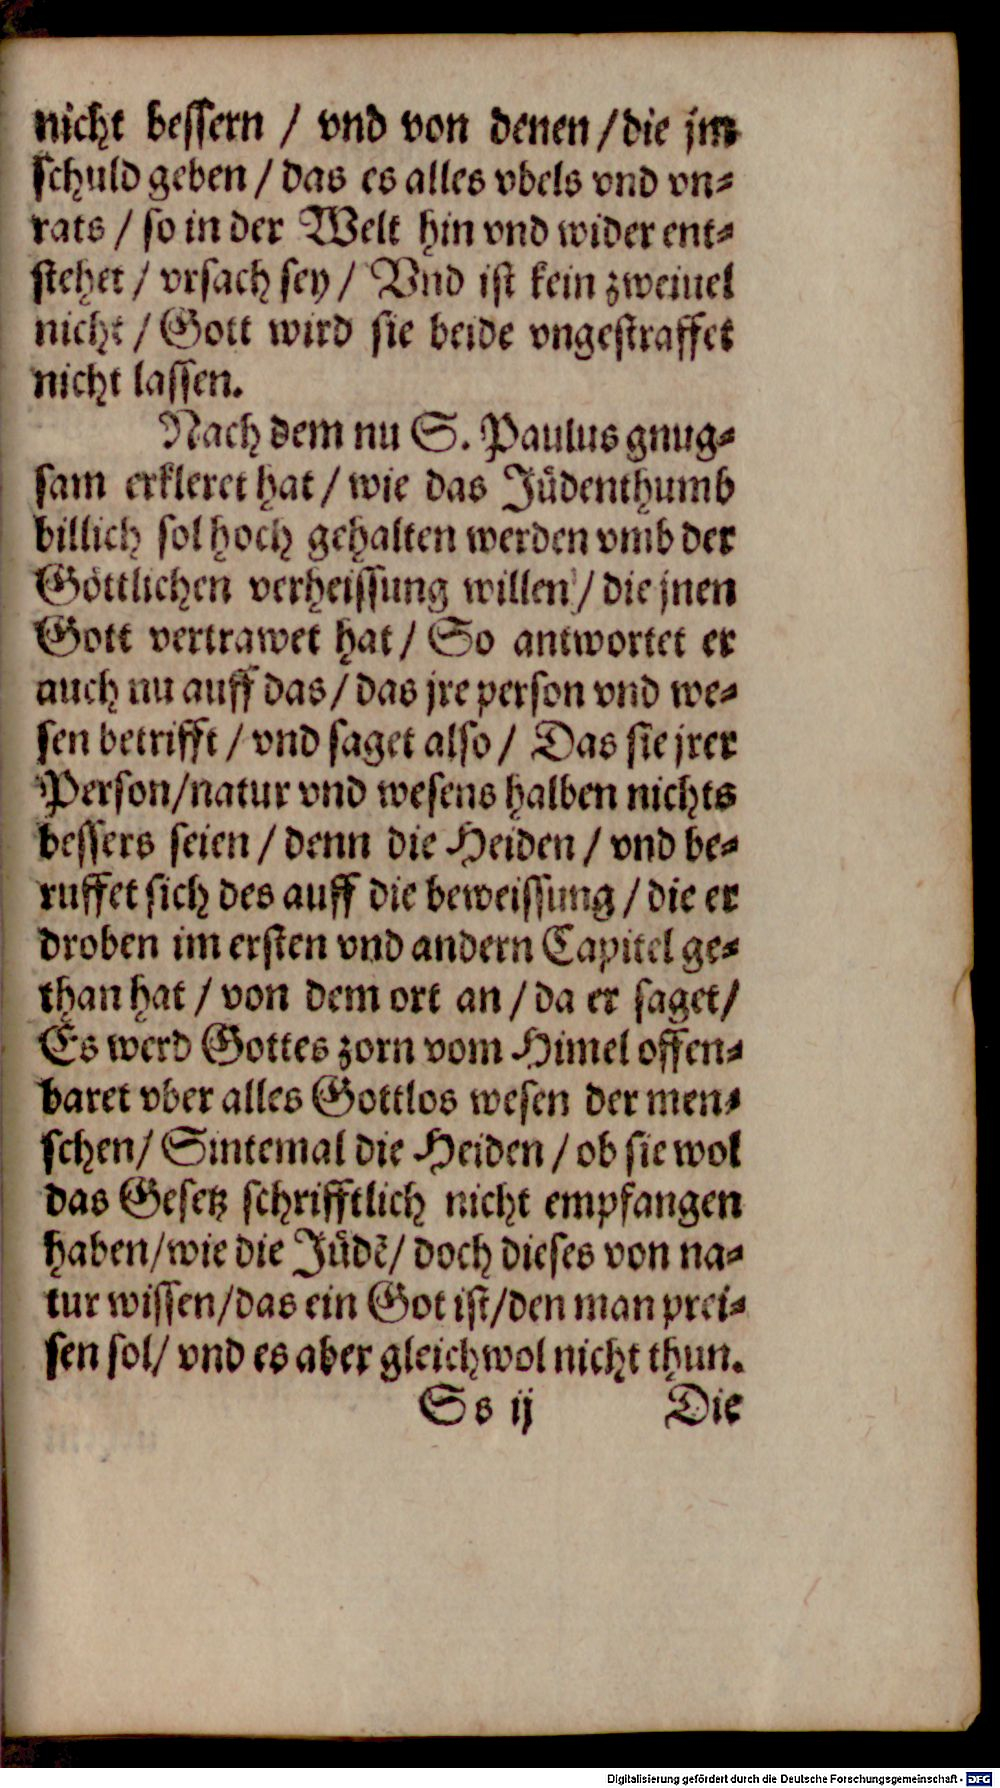 nicht bessern / vnd von denen / die jm
schuld geben / das es alles vbels vnd vn⸗
rats / so in der Welt hin vnd wider ent⸗
stehet / vrsach sey / Vnd ist kein zweiuel
nicht / Gott wird sie beide vngestraffet
nicht lassen.
Nach dem nu S. Paulus gnug⸗
sam erkleret hat / wie das Jüdenthumb
billich sol hoch gehalten werden vmb der
Göttlichen verheissung willen / die jnen
Gott vertrawet hat / So antwortet er
auch nu auff das / das jre person vnd we⸗
sen betrifft / vnd saget also / Das sie jrer
Person/natur vnd wesens halben nichts
bessers seien / denn die Heiden / vnd be⸗
ruffet sich des auff die beweissung / die er
droben im ersten vnd andern Capitel ge⸗
than hat / von dem ort an / da er saget/
Es werd Gottes zorn vom Himel offen⸗
baret vber alles Gottlos wesen der men⸗
schen/ Sintemal die Heiden / ob sie wol
das Gesetz schrifftlich nicht empfangen
haben/wie die Jüdẽ/ doch dieses von na⸗
tur wissen/das ein Got ist/den man prei⸗
sen sol/ vnd es aber gleichwol nicht thun.
Ss ij Die
Digitalisierung gefördert durch die Deutsche Forschungsgemeinschaft - DFG